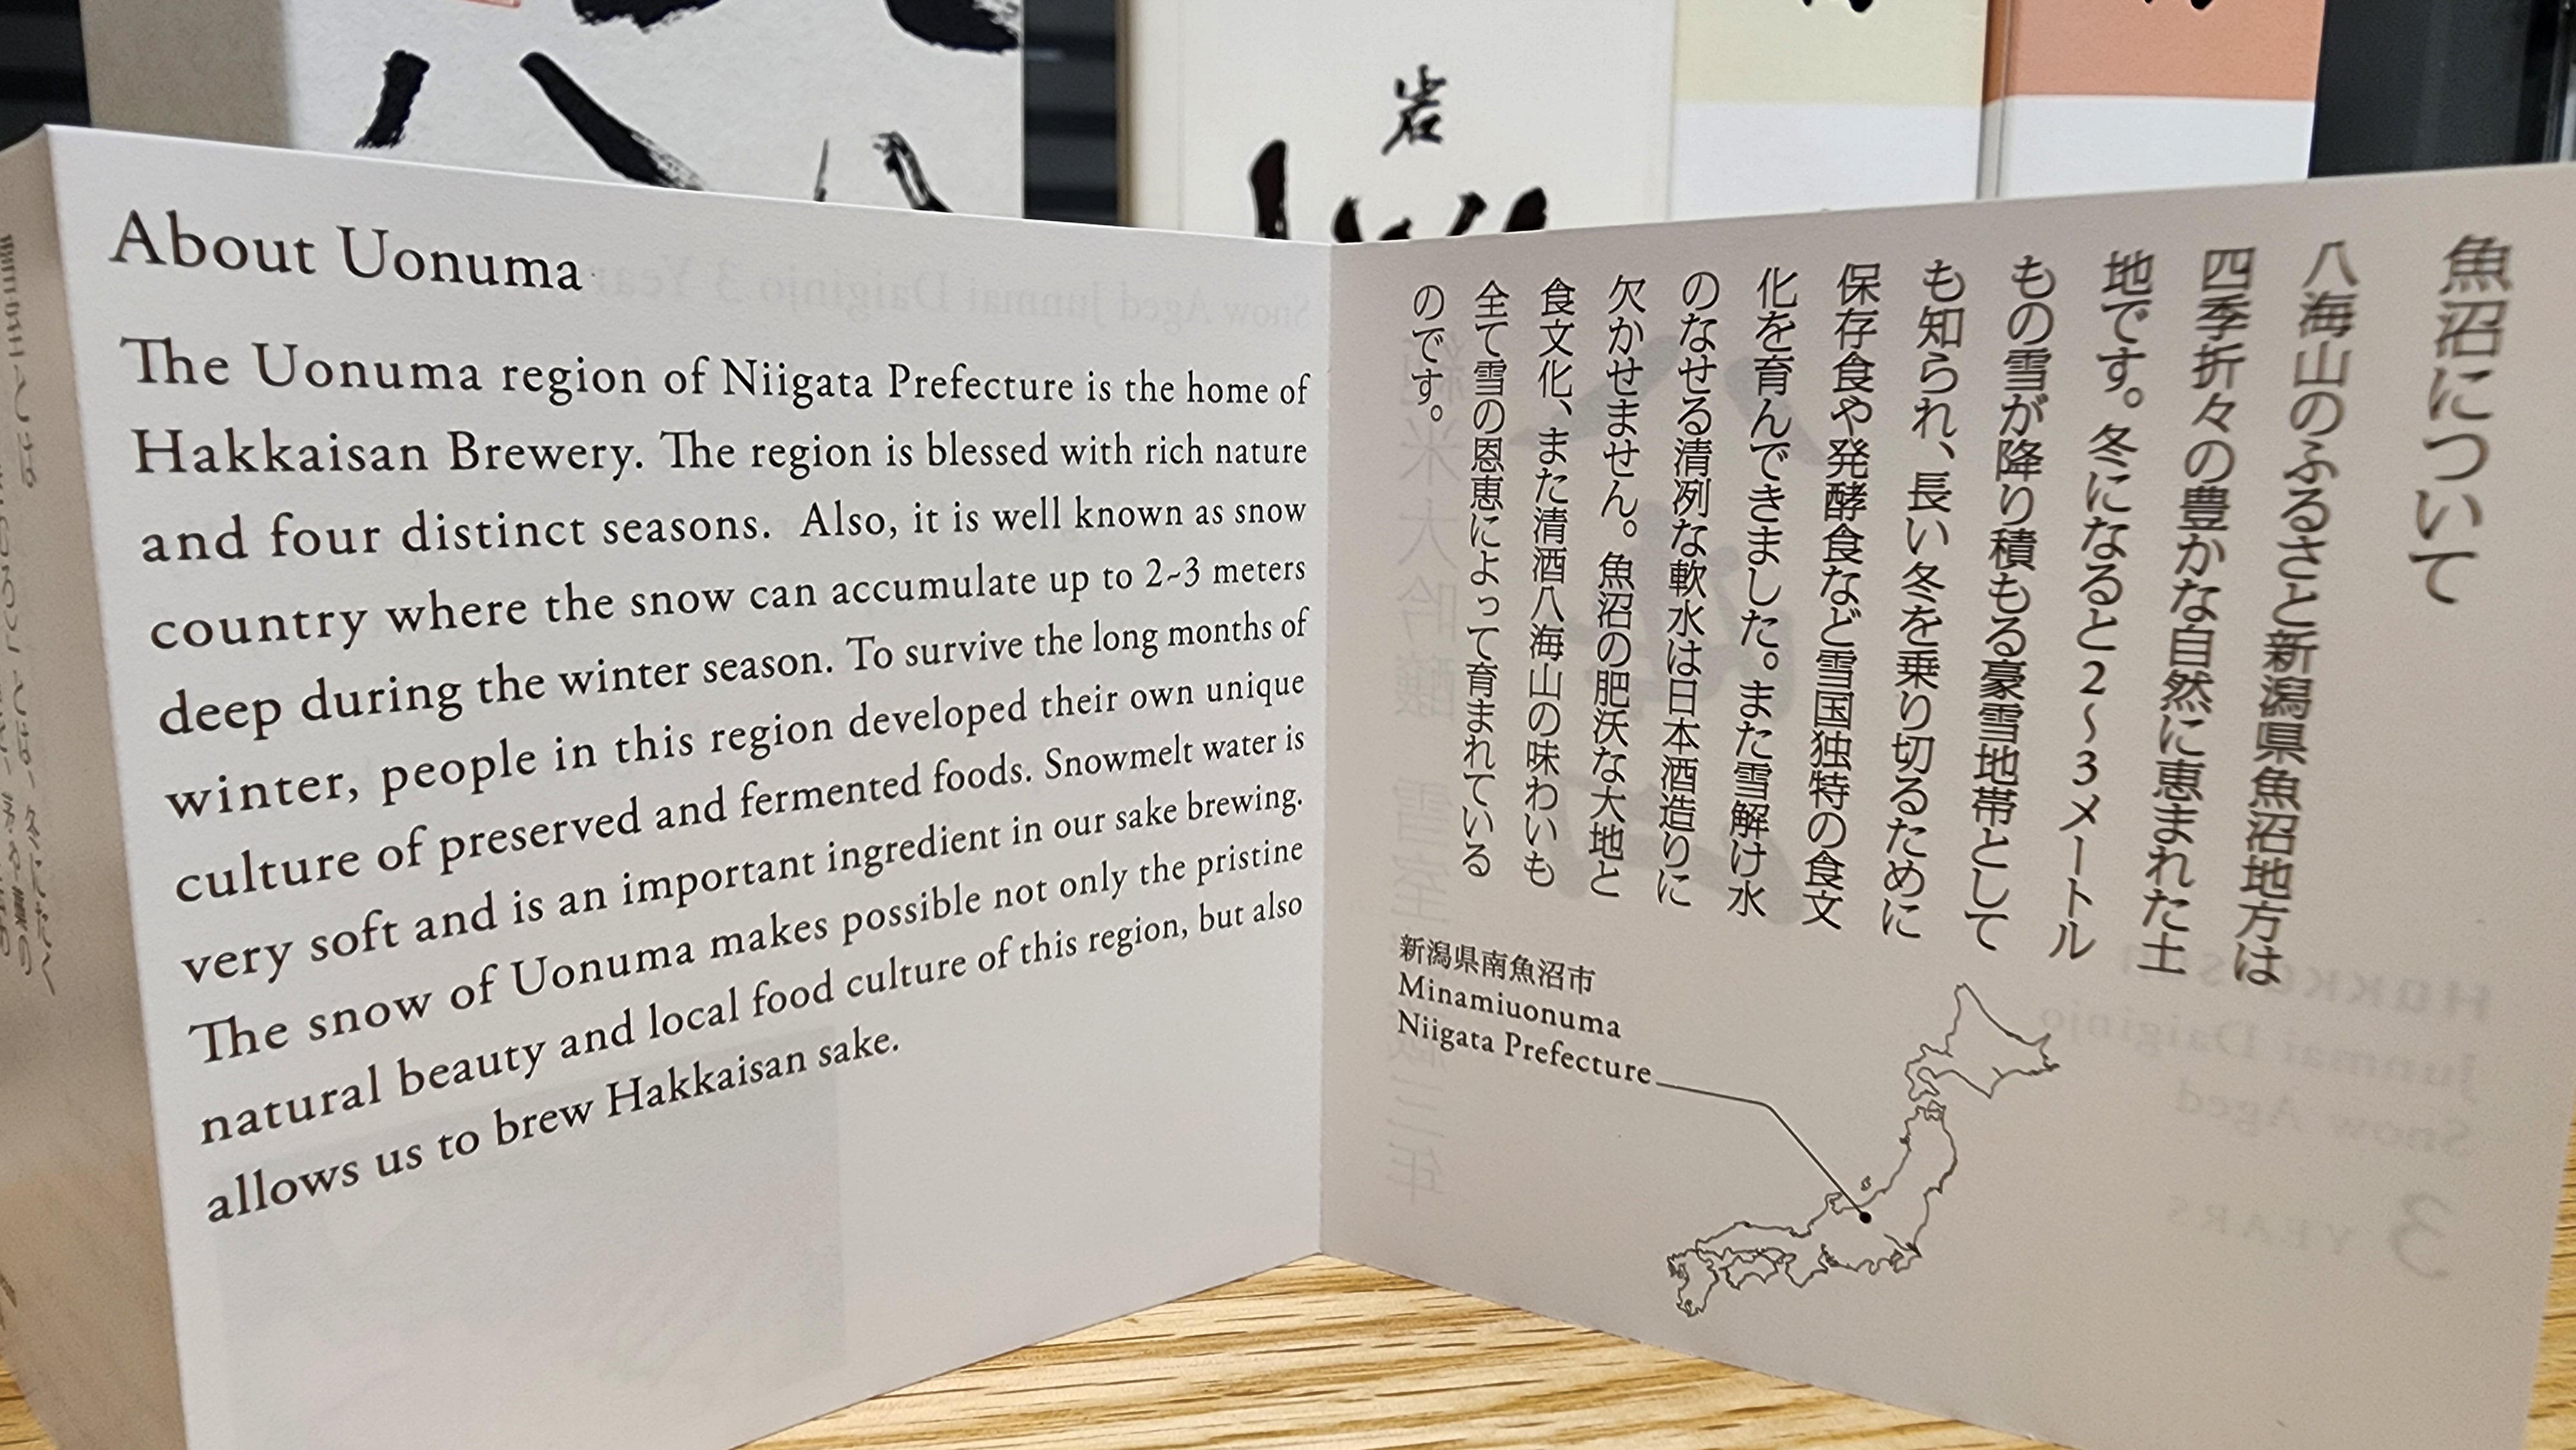 岩
About Uonuma
The Uonuma region of Niigata Prefecture is the home of
Hakkaisan Brewery. The region is blessed with rich nature
and four distinct seasons. Also, it is well known as snow
country where the snow can accumulate up to 2~3 meters
deep during the winter season. To survive the long months of
winter, people in this region developed their own unique
culture of preserved and fermented foods. Snowmelt water is
very soft and is an important ingredient in our sake brewing.
The snow of Uonuma makes possible not only the pristine
natural beauty and local food culture of this region, but also
allows us to brew Hakkaisan sake.
魚沼について
八海山のふるさと新潟県魚沼地方は
四季折々の豊かな自然に恵まれた土
地です。冬になると2〜3メートル
もの雪が降り積もる豪雪地帯として
も知られ、長い冬を乗り切るために
保存食や発酵食など雪国独特の食文
化を育んできました。また雪解け水
のなせる清冽な軟水は日本酒造りに
欠かせません。魚沼の肥沃な大地と
食文化、また清酒八海山の味わいも
全て雪の恩恵によって育まれている
のです。
新潟県南魚沼市
Minamiuonuma
Niigata Prefecture
Snow Aged Junmai Daiginjo 3 Year
純米大吟醸 雪室
Junmai Daiginjo
Snow Aged
3 YEARS